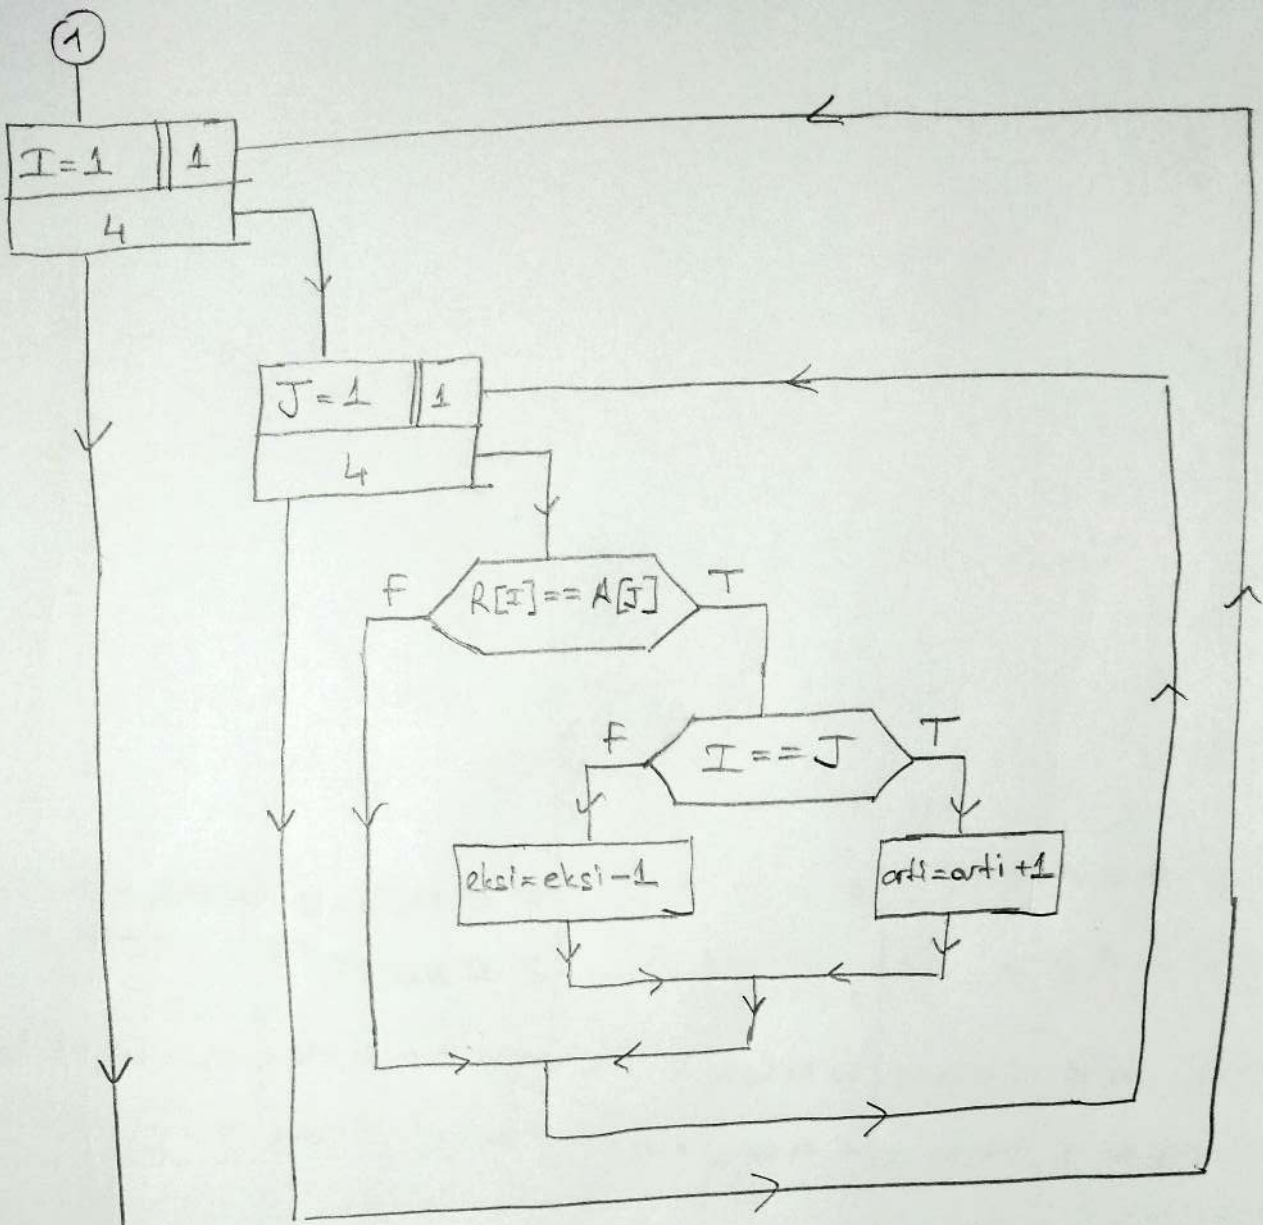 1
I=1 1
4
J=1 1
4
F R[I]==A[J] T
F I==J T
eksi=eksi-1 arti=arti+1